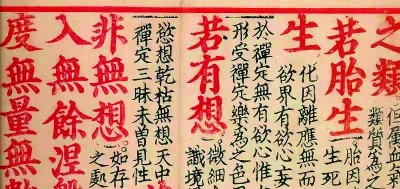 之類
但屬血
類質為
若胎生
胎因
生死
生
化因離應無而
欲界有欲心妄
於禪定無有欲心惟
形受禪定樂為之色
若有想
微細
識境
慾想乾枯無想天中
禪定三昧未曾見性
非無想
如存
之處
入無餘涅
度無量無